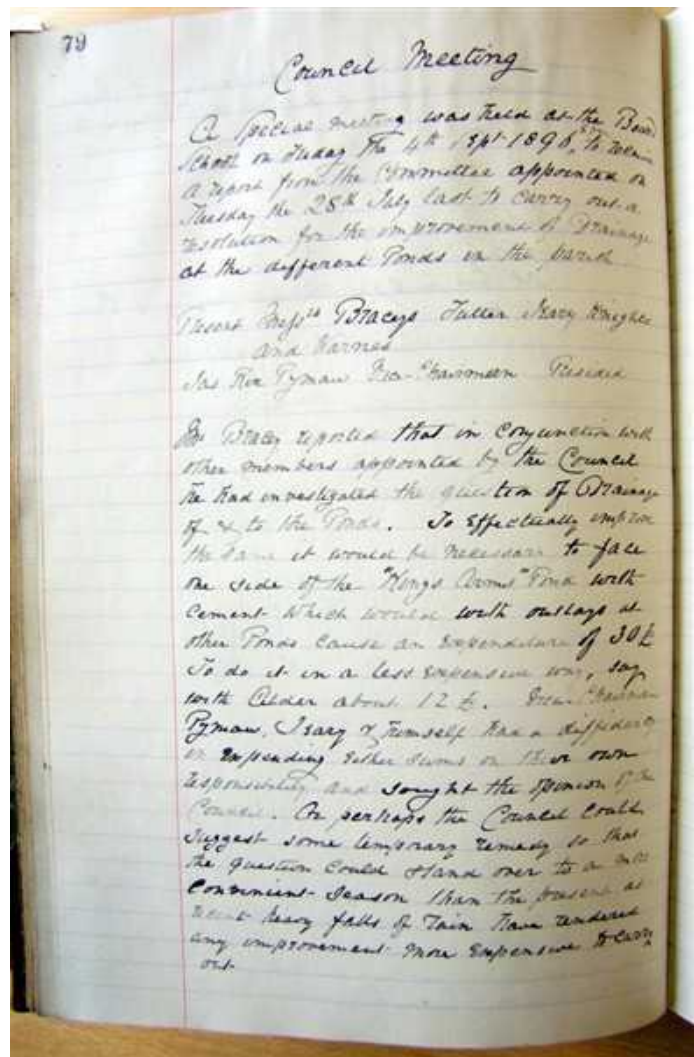 79
Council Meeting
A Special meeting was held at the Board
School on Friday the 4th Sept 1896, to receive
a report from the Committee appointed on
Tuesday the 28th July last to carry out a
resolution for the improvement of Drainage
at the different Ponds in the parish
Present Messrs Braceys Fuller Knights
and Barnes
Jas Rix Pyman Vice-Chairman Presided
Mr Bracey reported that in conjunction with
other members appointed by the Council
he had investigated the question of Drainage
of & to the Ponds. To effectually improve
the same it would be necessary to face
one side of the "Kings Arms" Pond with
cement which would with outlays at
other Ponds cause an expenditure of 30£
To do it in a less expensive way, say
with about 12£. Chairman
Pyman, & himself had a diffidence
in expending either sums on their own
responsibility and sought the opinion of the
Council. Or perhaps the Council could
suggest some temporary remedy so that
the question could stand over to a more
convinient season than the present as
recent heavy falls of rain have rendered
any improvement more expensive to carry
out